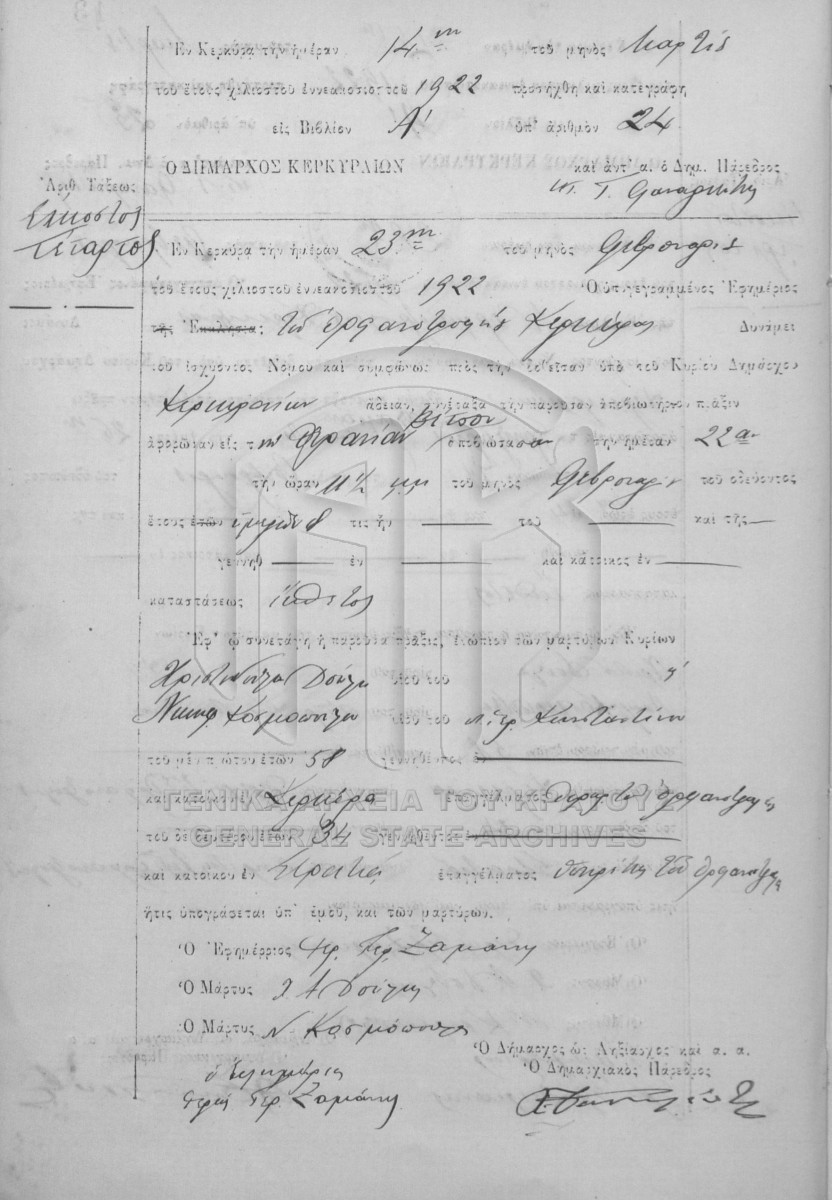 Ἐν Κερκύρᾳ τὴν ἡμέραν 14η τοῦ μηνὸς Μαρτίου
τοῦ ἔτους χιλιοστοῦ ἐννεακοσιοστοῦ 1922 προσήχθη καὶ κατεγράφη
εἰς Βιβλίον Α' ὑπ' ἀριθμὸν 24
Ο ΔΗΜΑΡΧΟΣ ΚΕΡΚΥΡΑΙΩΝ καὶ ἀντ' α. ὁ Δημ. Πάρεδρος
Ἀριθ. Τάξεως
Εἰκοστὸς
Τέταρτος
Ἐν Κερκύρᾳ τὴν ἡμέραν 23η τοῦ μηνὸς Φεβρουαρίου
τοῦ ἔτους χιλιοστοῦ ἐννεακοσιοστοῦ 1922 Ὁ ὑπογεγραμμένος Ἐφημέριος
τῆς Ἐκκλησίας τοῦ Ὀρφανοτροφείου Κερκύρας Δυνάμει
τοῦ ἰσχύοντος Νόμου καὶ συμφώνως πρὸς τὴν δοθεῖσαν ὑπὸ τοῦ Κυρίου Δημάρχου
Κερκυραίων ἄδειαν, συνέταξα τὴν παροῦσαν ἀποβιωτήριον πρᾶξιν
ἀφορῶσαν εἰς τὴν Οὐρανίαν Βίτσου ἀποβιώσασαν τὴν ἡμέραν 22αν
τὴν ὥραν 11 1/2 τοῦ μηνὸς Φεβρουαρίου τοῦ ὁδεύοντος
ἔτους ἐτῶν ἡμερῶν 8 τις ἦν τοῦ καὶ τῆς
γεννηθ ἐν καὶ κάτοικος ἐν
καταστάσεως ἔκθετος
Ἐφ' ᾧ συνετάγη ἡ παροῦσα πρᾶξις, ἐνώπιον τῶν μαρτύρων Κυρίων
υἱοῦ τοῦ
Νικηφ. Κοσμόπουλου υἱοῦ τοῦ Κωνσταντίνου
τοῦ μὲν πρώτου ἐτῶν 58 γεννηθέντος ἐν
καὶ κατοίκου ἐν Κερκύρᾳ ἐπαγγέλματος Ὀρφανοτροφείου
τοῦ δὲ δευτέρου ἐτῶν 34 γεννηθέντος
καὶ κατοίκου ἐν ἐπαγγέλματος ὑπηρέτης τοῦ Ὀρφανοτροφείου
ἥτις ὑπογράφεται ὑπ' ἐμοῦ, καὶ τῶν μαρτύρων.
Ὁ Ἐφημέριος Ζαμάνης
Ὁ Μάρτυς
Ὁ Μάρτυς Ν. Κοσμόπουλος
Ὁ Δήμαρχος ὡς Ληξίαρχος καὶ α. α.
Ὁ Δημαρχιακὸς Πάρεδρος
ὁ Ἐφημέριος
Ζαμάνης
ΓΕΝΙΚΑ ΑΡΧΕΙΑ ΤΟΥ ΚΡΑΤΟΥΣ
GENERAL STATE ARCHIVES